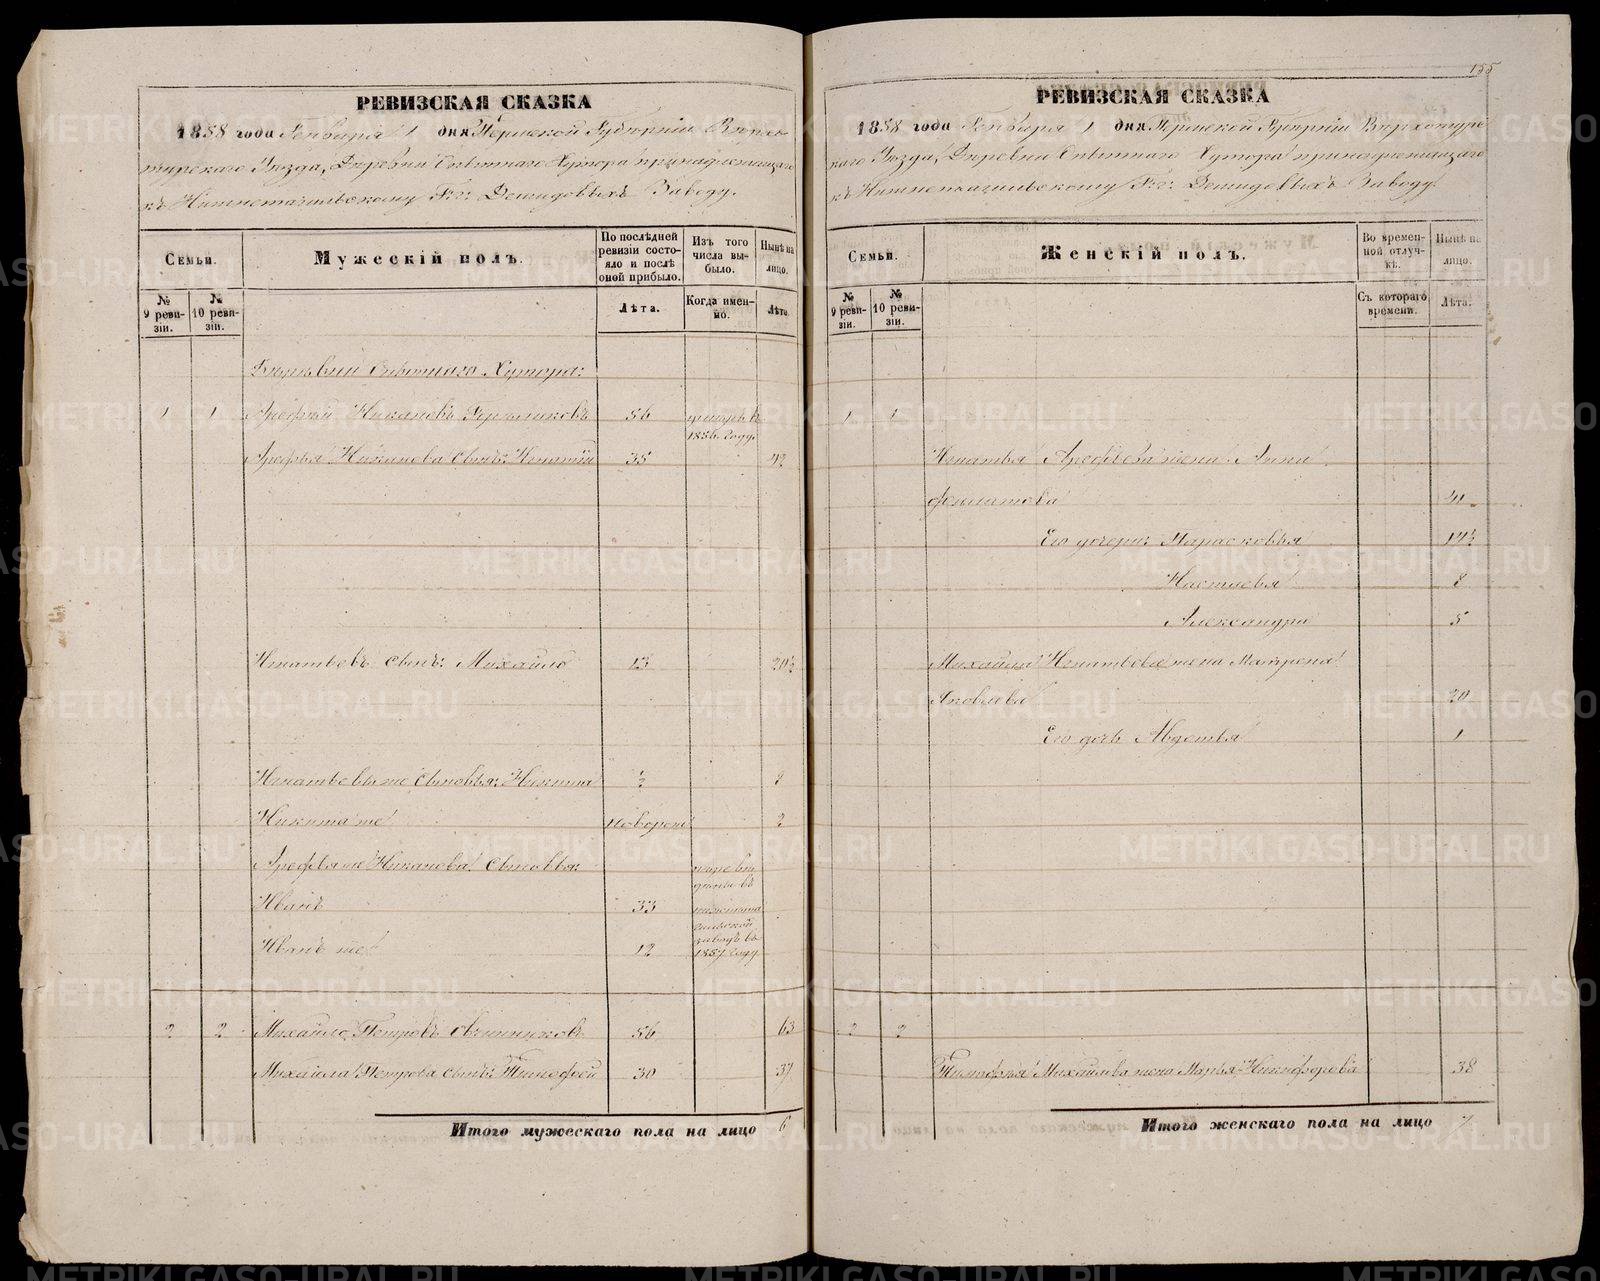 155
РЕВИЗСКАЯ СКАЗКА
1858 года Генваря 1 дня Пермской Губерніи Верхо-
турскаго Уѣзда, Деревни Хутора принадлежащаго
къ Нижнетагильскому Гг: Демидовыхъ Заводу.
Семьи.
Мужескій полъ.
По послѣдней ревизіи состо-яло и послѣ оной прибыло.
Изъ того числа вы-было.
Нынѣ на лицо.
№ 9 реви-зіи.
№ 10 реви-зіи.
Лѣта.
Когда имен-но.
Лѣта.
Деревни Хутора:
1 1 Арефій 56 въ 1856 году.
Арефья сынъ: Игнатій 35 42
Игнатьевъ сынъ: Михайло 13 20½
Игнатьевы же сыновья: Никита ½ 8
Никита же новорож 2
Арефья же сыновья:
Иванъ 33
Иванъ же 12
заводъ въ 1857 году.
2 2 Михайло Петровъ Овчинниковъ 56 63
Михайла Петрова сынъ: Тимофей 30 37
Итого мужескаго пола на лицо 6
РЕВИЗСКАЯ СКАЗКА
1858 года Генваря 1 дня Пермской Губерніи Верхотурс-
каго Уѣзда, Деревни Хутора принадлежащаго
къ Нижнетагильскому Гг: Демидовыхъ Заводу.
Семьи.
Женскій полъ.
Во времен-ной отлуч-кѣ.
Нынѣ на лицо.
№ 9 реви-зіи.
№ 10 реви-зіи.
Съ котораго времени.
Лѣта.
1 1
Игнатья Арефьева жена Анна
Филатова 41
Его дочери: Парасковья 14½
Настасья 8
Александра 5
Михайла Игнатьева жена Матрена
Яковлева 20
Его дочь Авдотья 1
2 2
Тимофея Михайлова жена Марья Никифорова 38
Итого женскаго пола на лицо 7
METRIKI.GASO-URAL.RU